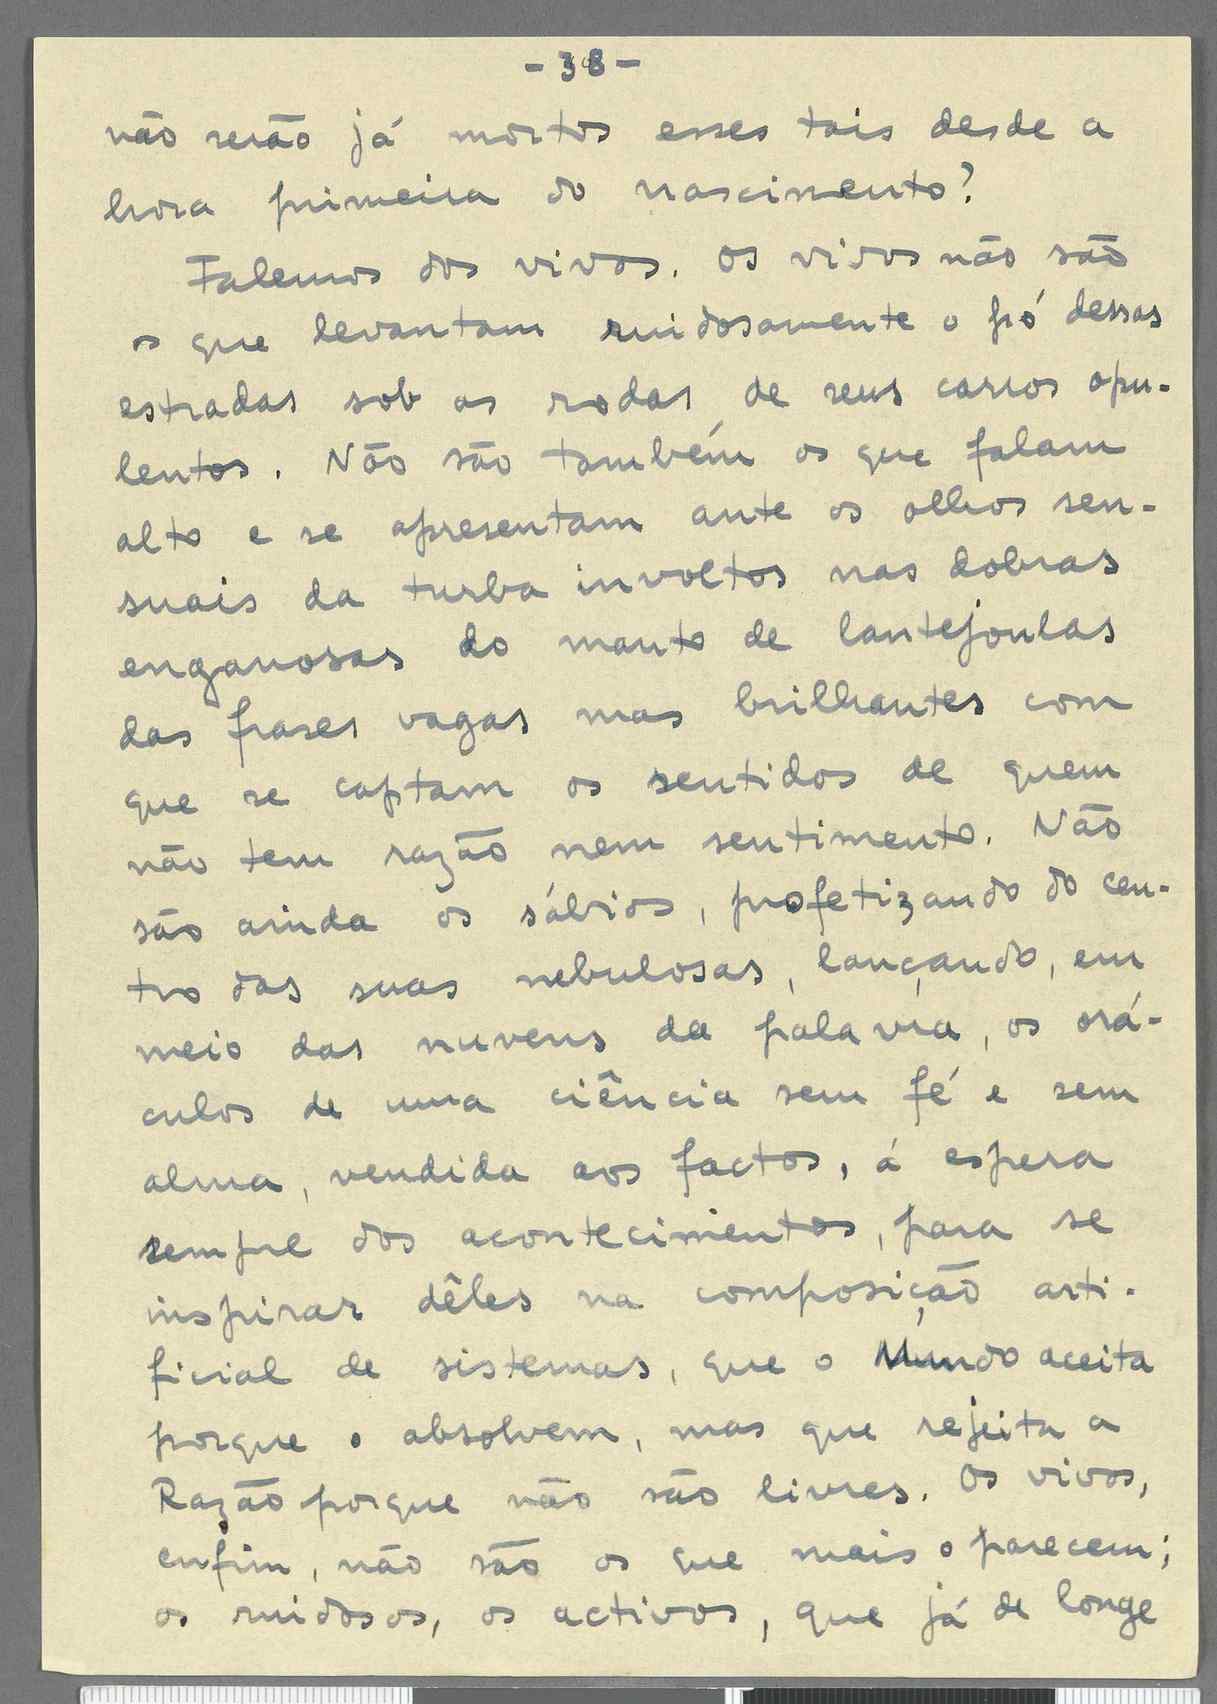 - 38 -
não serão já mortos esses tais desde a
hora primeira do nascimento?
Falemos dos vivos. Os vivos não são
os que levantam ruidosamente o pó dessas
estradas sob as rodas de seus carros opu-
lentos. Não são também os que falam
alto e se apresentam ante os olhos sen-
suais da turba involtos nas dobras
enganosas do manto de lantejoulas
das frases vagas mas brilhantes com
que se captam os sentidos de quem
não tem razão nem sentimento. Não
são ainda os sábios, profetizando do cen-
tro das suas nebulosas, lançando, em
meio das nuvens da palavra, os orá-
culos de uma ciência sem fé e sem
alma, vendida aos factos, á espera
sempre dos acontecimentos, para se
inspirar dêles na composição arti-
ficial de sistemas, que o Mundo aceita
porque o absolvem, mas que rejeita a
Razão porque não são livres. Os vivos,
enfim, não são os que mais o parecem;
os ruidosos, os activos, que já de longe